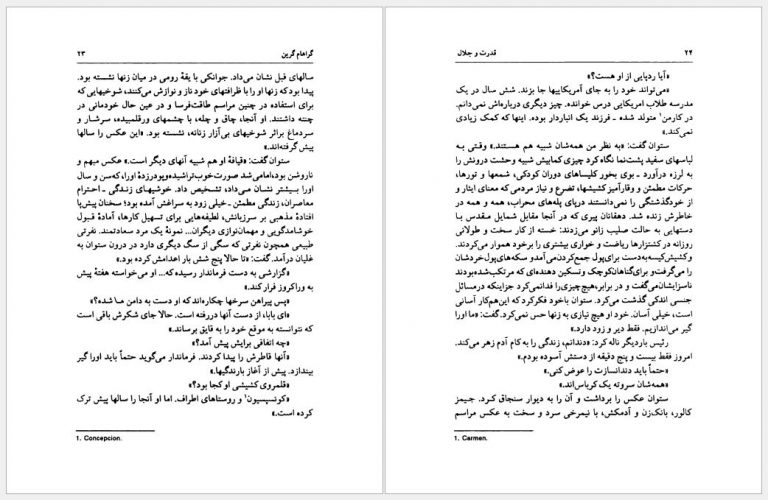 گراهام گرین ۲۳
سالهای قبل نشان می‌داد. جوانکی با یقهٔ رومی در میان زنها نشسته بود.
پیدا بود که زنها او را با ظرافتهای خود ناز و نوازش می‌کنند، شوخیهایی که
برای استفاده در چنین مراسم طاقت‌فرسا و در عین حال خودمانی در
چنته داشتند. او آنجا، چاق و چله، با چشمهای ورقلمبیده، سرشار و
سردماغ براثر شوخیهای بی‌آزار زنانه، نشسته بود. «این عکس را سالها
پیش گرفته‌اند.»
ستوان گفت: «قیافهٔ او هم شبیه آنهای دیگر است.» عکس مبهم و
ناروشن بود، اما می‌شد صورت خوب تراشیده و پودرزدهٔ او را، که سن و سال
او را بیشتر نشان می‌داد، تشخیص داد. خوشیهای زندگی ـ احترام
معاصران، زندگی مطمئن ـ خیلی زود به سراغش آمده بود؛ سخنان پیش‌پا
افتادهٔ مذهبی بر سرزبانش، لطیفه‌هایی برای تسهیل کارها، آمادهٔ قبول
خوشامدگویی و مهمان‌نوازی دیگران... نمونهٔ یک مرد سعادتمند. نفرتی
طبیعی همچون نفرتی که سگی از سگ دیگری دارد در درون ستوان به
غلیان درآمد. گفت: «تا حالا پنج شش بار اعدامش کرده بود.»
«گزارشی به دست فرماندار رسیده که... او می‌خواسته هفتهٔ پیش
به وراکروز فرار کند.»
«پس پیراهن سرخها چکاره‌اند که او دست به دامن ما شده؟»
«ای بابا، از دست آنها دررفته است. حالا جای شکرش باقی است
که نتوانسته به موقع خود را به قایق برساند.»
«چه اتفاقی برایش پیش آمد؟»
«آنها قاطرش را پیدا کردند. فرماندار می‌گوید حتماً باید او را گیر
بیندازد. پیش از آغاز بارندگیها.»
«قلمروی کشیشی او کجا بود؟»
«کونسپسیون۱ و روستاهای اطراف. اما او آنجا را سالها پیش ترک
کرده است.»
1. Concepcion.
۲۴ قدرت و جلال
«آیا ردپایی از او هست؟»
«می‌تواند خود را به جای آمریکاییها جا بزند. شش سال در یک
مدرسه طلاب امریکایی درس خوانده. چیز دیگری درباره‌اش نمی‌دانم.
در کارمن۱ متولد شده ـ فرزند یک انباردار بوده. اینها که کمک زیادی
نمی‌کند.»
ستوان گفت: «به نظر من همه‌شان شبیه هم هستند.» وقتی به
لباسهای سفید پشت‌نما نگاه کرد چیزی کمابیش شبیه وحشت درونش را
به لرزه درآورد ـ بوی بخور کلیساهای دوران کودکی، شمعها و تورها،
حرکات مطمئن و وقارآمیز کشیشها، تضرع و نیاز مردمی که معنای ایثار و
از خودگذشتگی را نمی‌دانستند درپای پله‌های محراب، همه و همه در
خاطرش زنده شد. دهقانان پیری که در آنجا مقابل شمایل مقدس با
دستهایی به حالت صلیب زانو می‌زدند: خسته از کار سخت و طولانی
روزانه در کشتزارها ریاضت و خواری بیشتری را برخود هموار می‌کردند.
و کشیش کیسه به دست برای پول جمع کردن می‌آمد و سکه‌های پول خردشان
را می‌گرفت و برای گناهان کوچک و تسکین دهنده‌ای که مرتکب شده بودند
ناسزایشان می‌گفت و در برابر، هیچ چیزی را فدا نمی‌کرد جزاینکه درمسائل
جنسی اندکی گذشت می‌کرد. ستوان باخود فکرکرد که این هم کار آسانی
است، خیلی آسان. خود او هیچ نیازی به زنها حس نمی‌کرد. گفت: «ما او را
گیر می‌اندازیم. فقط دیر و زود دارد.»
رئیس باردیگر ناله کرد: «دندانم، زندگی را به کام آدم زهر می‌کند.
امروز فقط بیست و پنج دقیقه از دستش آسوده بودم.»
«حتماً باید دندانسازت را عوض کنی.»
«همه‌شان سروته یک کرباس‌اند.»
ستوان عکس را برداشت و آن را به دیوار سنجاق کرد. جیمز
کالور، بانک‌زن و آدمکش، با نیمرخی سرد و سخت به عکس مراسم
1. Carmen.